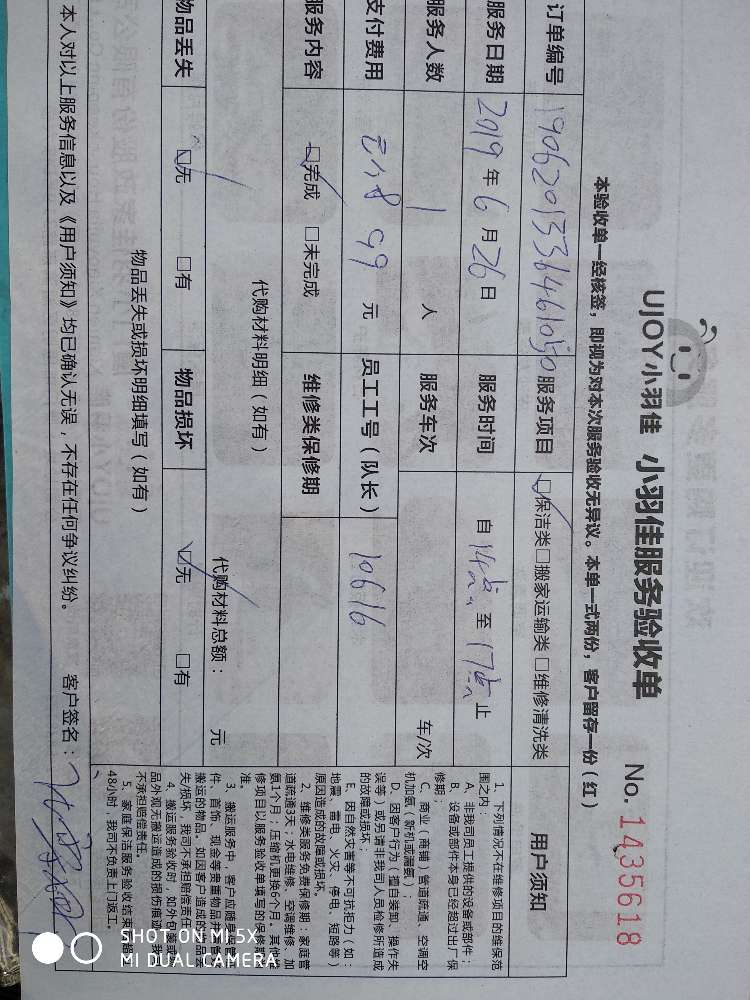 UJOY小羽佳 小羽佳服务验收单
No. 1435618
本验收单一经核签，即视为对本次服务验收无异议。本单一式两份，客户留存一份（红）
订单编号
服务项目
保洁类 搬家运输类 维修清洗类
服务日期 2019 年 6 月 26 日
服务时间 自 14点 至 17点 止
服务人数 1 人
服务车次 车/次
支付费用 99 元
员工工号（队长） 10616
服务内容 完成 未完成
维修类保修期
代购材料明细（如有）
代购材料总额： 元
物品丢失 无 有
物品损坏 无 有
物品丢失或损坏明细填写（如有）
本人对以上服务信息以及《用户须知》均已确认无误，不存在任何争议纠纷。
客户签名：
用户须知
1、下列情况不在维修项目的维保范
围之内：
A、非我司员工提供的设备或部件；
B、设备或部件本身已经超过出厂保
修期；
C、商业（商铺）管道疏通、空调空
机加氨（新机或漏氨）；
D、因客户行为（擅自装卸、操作失
误等）或另请非我司人员检修所造成
的故障或损坏；
E、因自然灾害等不可抗拒力（如：
地震、雷电、火灾、停电、短路等）
原因造成的故障或损坏。
2、维修类服务免费保修期：家庭管
道疏通3天；水电维修、空调维修、加
氨1个月；压缩机更换6个月。其他维
修项目以服务验收单填写的保修期为
准。
3、搬运服务中，客户应随身保管证
件、首饰、现金等贵重物品并
搬运的物品。如因客户造成的物品丢
失/损坏，我司不承担赔偿责任。
4、搬运服务验收时，如外包装或
品外观无搬运造成的损伤痕迹，我司
不承担赔偿责任。
5、家庭保洁服务验收结束
48小时，我司不负责上门返工。
SHOT ON MI 5X
MI DUAL CAMERA